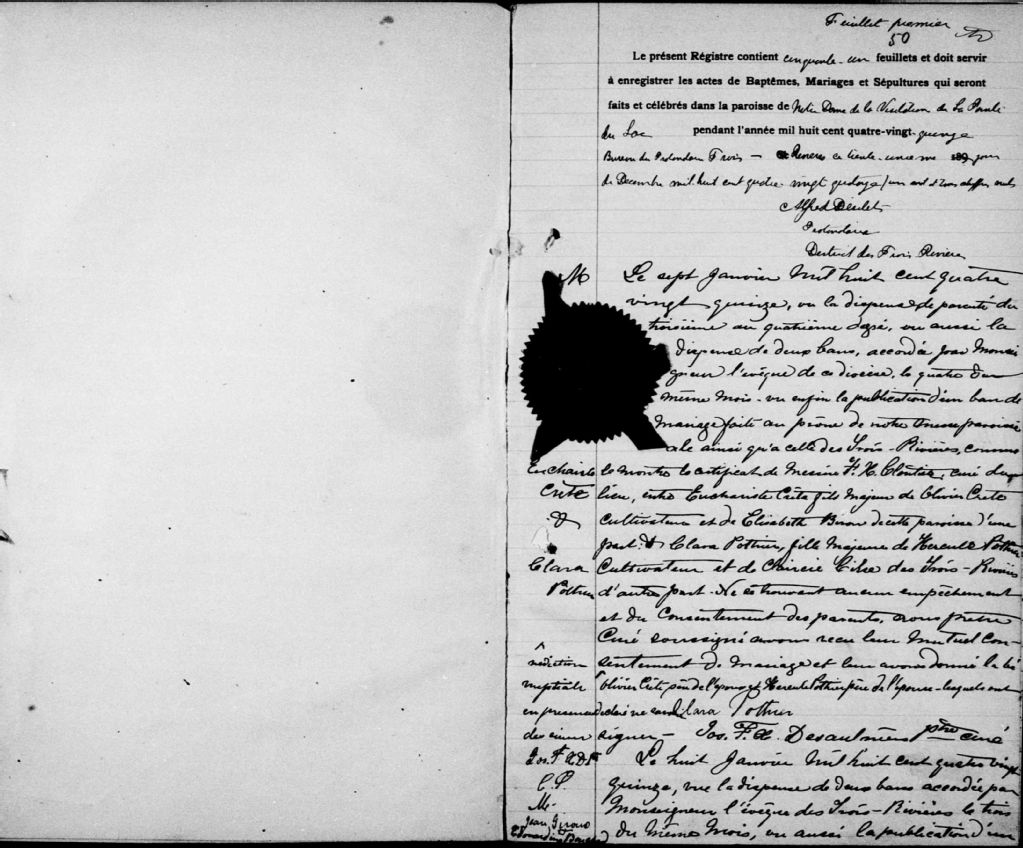 Feuillet premier
50
Le présent Régistre contient cinquante-un feuillets et doit servir
à enregistrer les actes de Baptêmes, Mariages et Sépultures qui seront
faits et célébrés dans la paroisse de Notre Dame de la Visitation de La Pointe
du Lac pendant l'année mil huit cent quatre-vingt-quinze
Bureau du Protonotaire Trois - Rivières ce trente-unième jour
de Decembre mil huit cent quatre-vingt quatorze
Alfred Désilets
Protonotaire
District des Trois Rivières
M Le sept Janvier Mil huit cent quatre
vingt quinze, vu la dispense de parenté du
troisième au quatrième degré, vu aussi la
dispense de deux bans, accordée par Monsei
gneur l'évêque de ce diocèse, le quatre du
même mois - vu enfin la publication d'un ban de
mariage faite au prône de notre messe paroissi
ale ainsi qu'à celle des Trois-Rivières, comme
le montre le certificat de Messire F. H. Cloutier, curé du
lieu, entre Euchariste Crête fils Majeur de Olivier Crête
Cultivateur et de Elisabeth Biron de cette paroisse d'une
part & Clara Pothier, fille Majeure de Hercule Pothier
Cultivateur et de des Trois-Rivières
d'autre part. Ne se trouvant aucun empêchement
et du Consentement des parents, nous prêtre
Curé soussigné avons reçu leur Mutuel Con-
sentement de Mariage et leur avons donné la bé
Olivier Crête père de l'époux et Hercule Pothier père de l'épouse - lesquels ont
déclaré ne savoir Clara Pothier
signer - Jos. F. X. Desaulniers Ptre curé
Euchariste
Crête
&
Clara
Pothier
nédiction
nuptiale
en presence
de
Jos. F.
C. P.
Le huit Janvier Mil huit cent quatre vingt
quinze, vu la dispense de deux bans accordée par
Monseigneur l'évêque des Trois-Rivières le trois
du Même Mois, vu aussi la publication d'un
M.
Jean Giroux